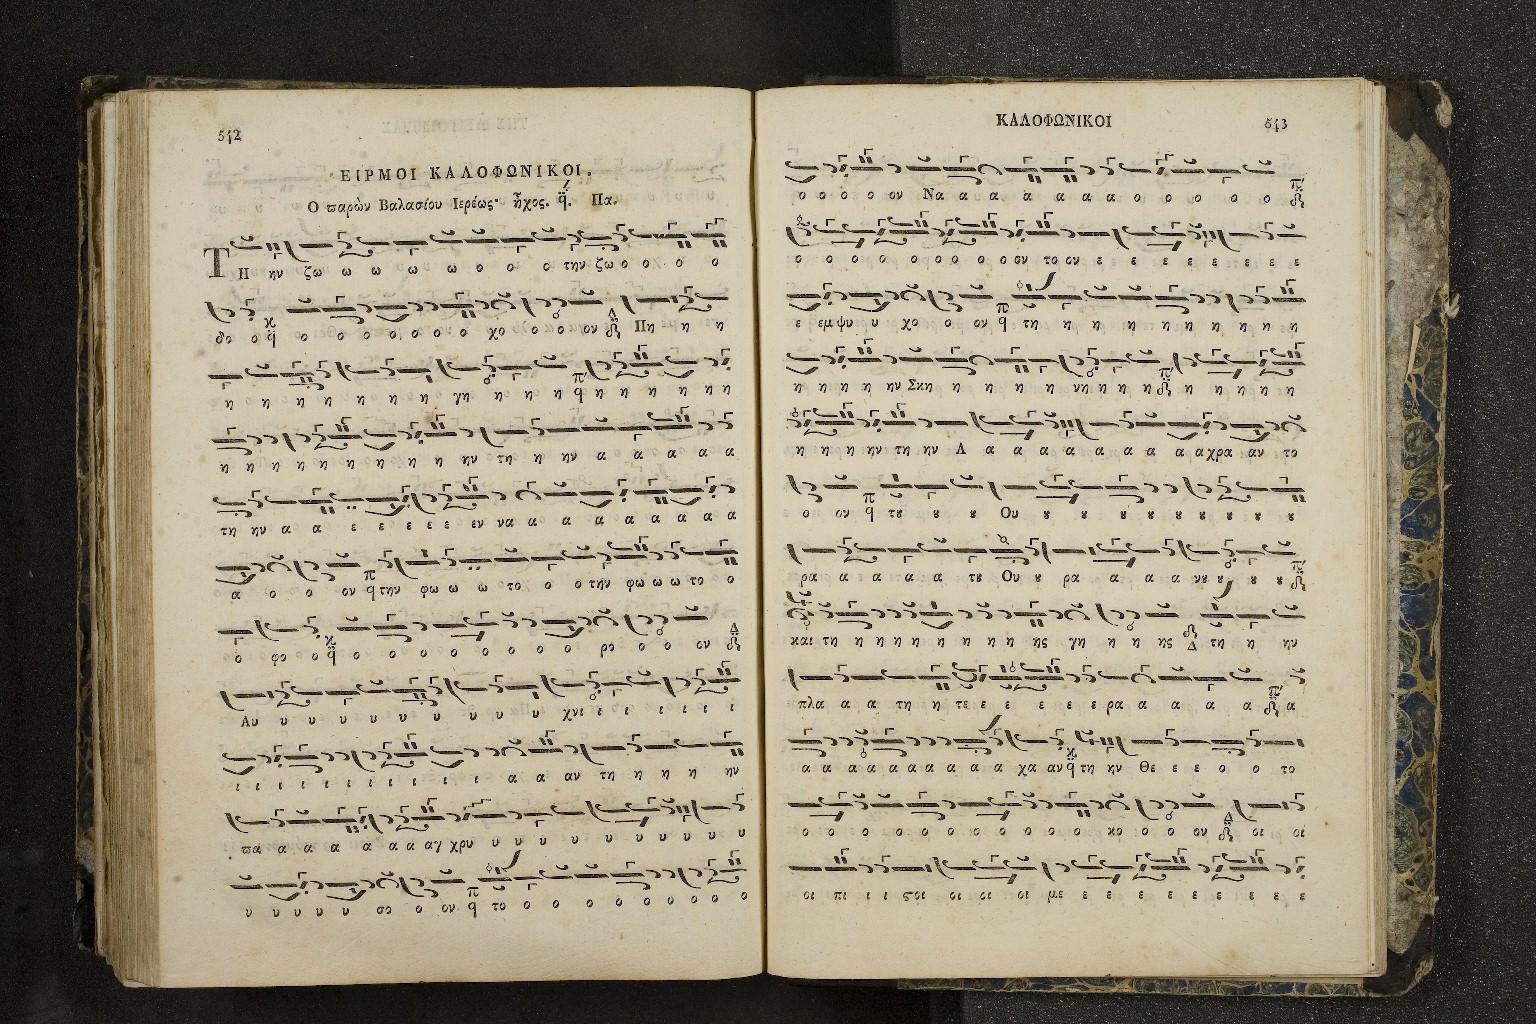 542
ΕΙΡΜΟΙ ΚΑΛΟΦΩΝΙΚΟΙ.
Ο παρὼν Βαλασίου Ιερέως· ἦχος. Πα.
ΤΗ ην ζω ω ω ω ω ο ο ο την ζω ο ο ο ο
δο ο ο ο ο ο ο ο ο χο ο ο ον Πη η η
η η η η η η γη η η η η η η η η η
η η η η η η η η η ην τη η ην α α α α α
τη ην α α ε ε ε ε ε εν να α α α α α α α α α
α ο ο ον την φω ω ω το ο ο την φω ω ω το ο
ο φο ο ο ο ο ο ο ο ο ο ρο ο ο ον
Αυ υ υ υ υ υ υ υ υ υ χνι ι ι ι ι ι
ι ι ι ι ι ι ι ι ι α α αν τη η η η ην
πα α α α α α α αγ χρυ υ υ υ υ υ υ υ υ υ
υ υ υ υ υ σο ο ον το ο ο ο ο ο ο ο ο ο
ΚΑΛΟΦΩΝΙΚΟΙ
543
ο ο ο ο ον Να α α α α α α ο ο ο ο ο
ο ο ο ο ο ο ο ο ο ον το ον ε ε ε ε ε ε ε ε
ε εμψυ υ χο ο ον τη η η η η η η η η η
η η η η ην Σκη η η η η νη η η η η η η η η
η η η ην τη ην Α α α α α α α α α αχρα αν το
ο ον τȣ ȣ ȣ Ου ȣ ȣ ȣ ȣ ȣ ȣ ȣ ȣ ȣ
ρα α α α α α τȣ Ου ȣ ρα α α α νȣ ȣ ȣ ȣ
και τη η η η η η η η η ης γη η η ης τη η ην
πλα α α τη η τε ε ε ε ε ε ρα α α α α α
α α α α α α α α α χα αν τη ην Θε ε ε ο ο το
ο ο ο ο ο ο ο ο ο ο ο κο ο ο ον οι οι
οι πι ι ι ϛοι οι οι οι με ε ε ε ε ε ε ε ε ε